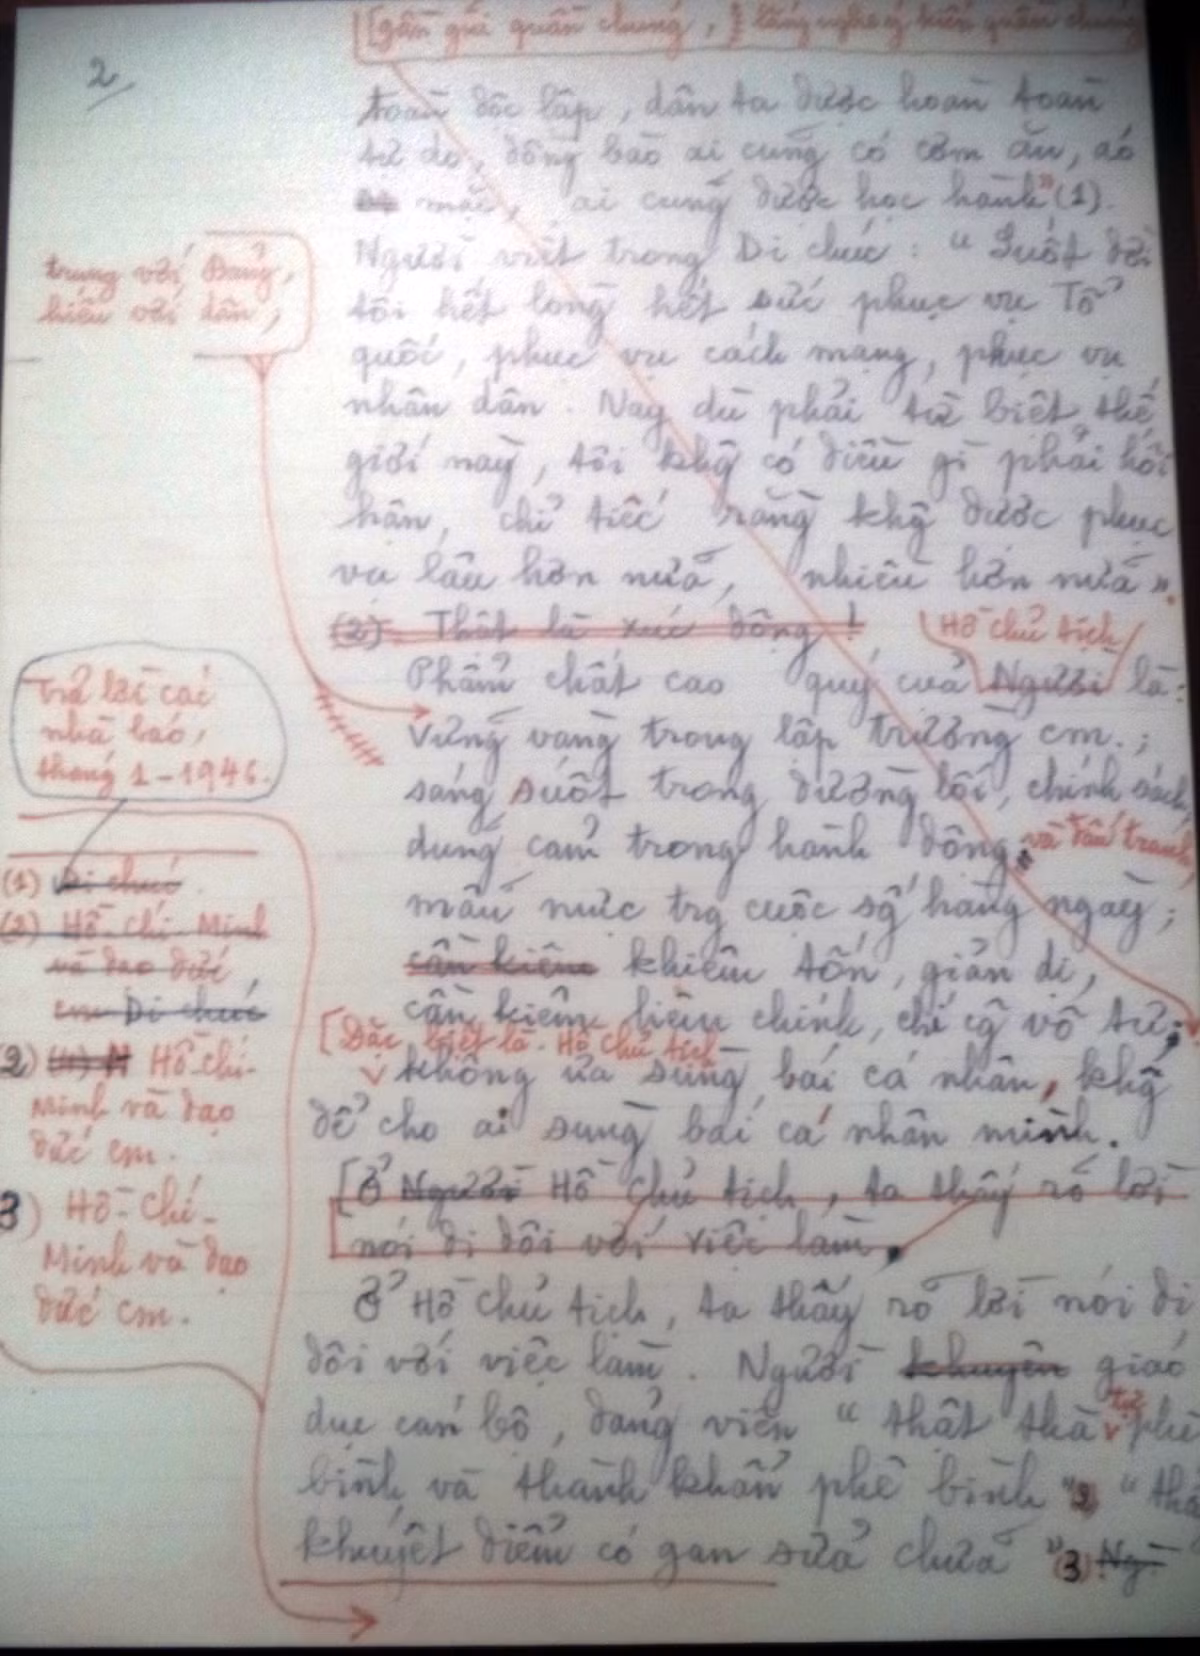 [gần gũi quần chúng, } lắng nghe ý kiến quần chúng
2/
toàn độc lập, dân ta được hoàn toàn
tự do, đồng bào ai cũng có cơm ăn, áo
mặc, ai cũng được học hành" (1).
Người viết trong Di chúc: "Suốt đời
tôi hết lòng hết sức phục vụ Tổ
quốc, phục vụ cách mạng, phục vụ
nhân dân. Nay dù phải từ biệt thế
giới này, tôi khg có điều gì phải hối
hận, chỉ tiếc rằng khg được phục
vụ lâu hơn nữa, nhiều hơn nữa".
(2) Thật là xúc động!
trung với Đảng,
hiếu với dân,
Hồ chủ tịch
Phẩm chất cao quý của Người là:
Vững vàng trong lập trường cm.;
sáng suốt trong đường lối, chính sách,
dũng cảm trong hành động, và đấu tranh,
mẫu mực trg cuộc sg hàng ngày;
cần kiệm khiêm tốn, giản dị,
cần kiệm liêm chính, chí cg vô tư;
[Đặc biệt là Hồ chủ tịch
không ưa sùng bái cá nhân, khg
để cho ai sùng bái cá nhân mình.
[Ở Người Hồ Chủ tịch, ta thấy rõ lời
nói đi đôi với việc làm.
Ở Hồ Chủ tịch, ta thấy rõ lời nói đi
đôi với việc làm. Người khuyên giáo
dục cán bộ, đảng viên "thật thà tự phê
bình và thành khẩn phê bình" 2 "thấ
khuyết điểm có gan sửa chữa" (3) Ng
Trả lời các
nhà báo,
tháng 1-1946.
(1) Di chúc.
(2) Hồ Chí Minh
và đạo đức,
cm Di chúc
2) Hồ Chí-
Minh và đạo
đức cm.
3) Hồ-Chí-
Minh và đạo
đức cm.